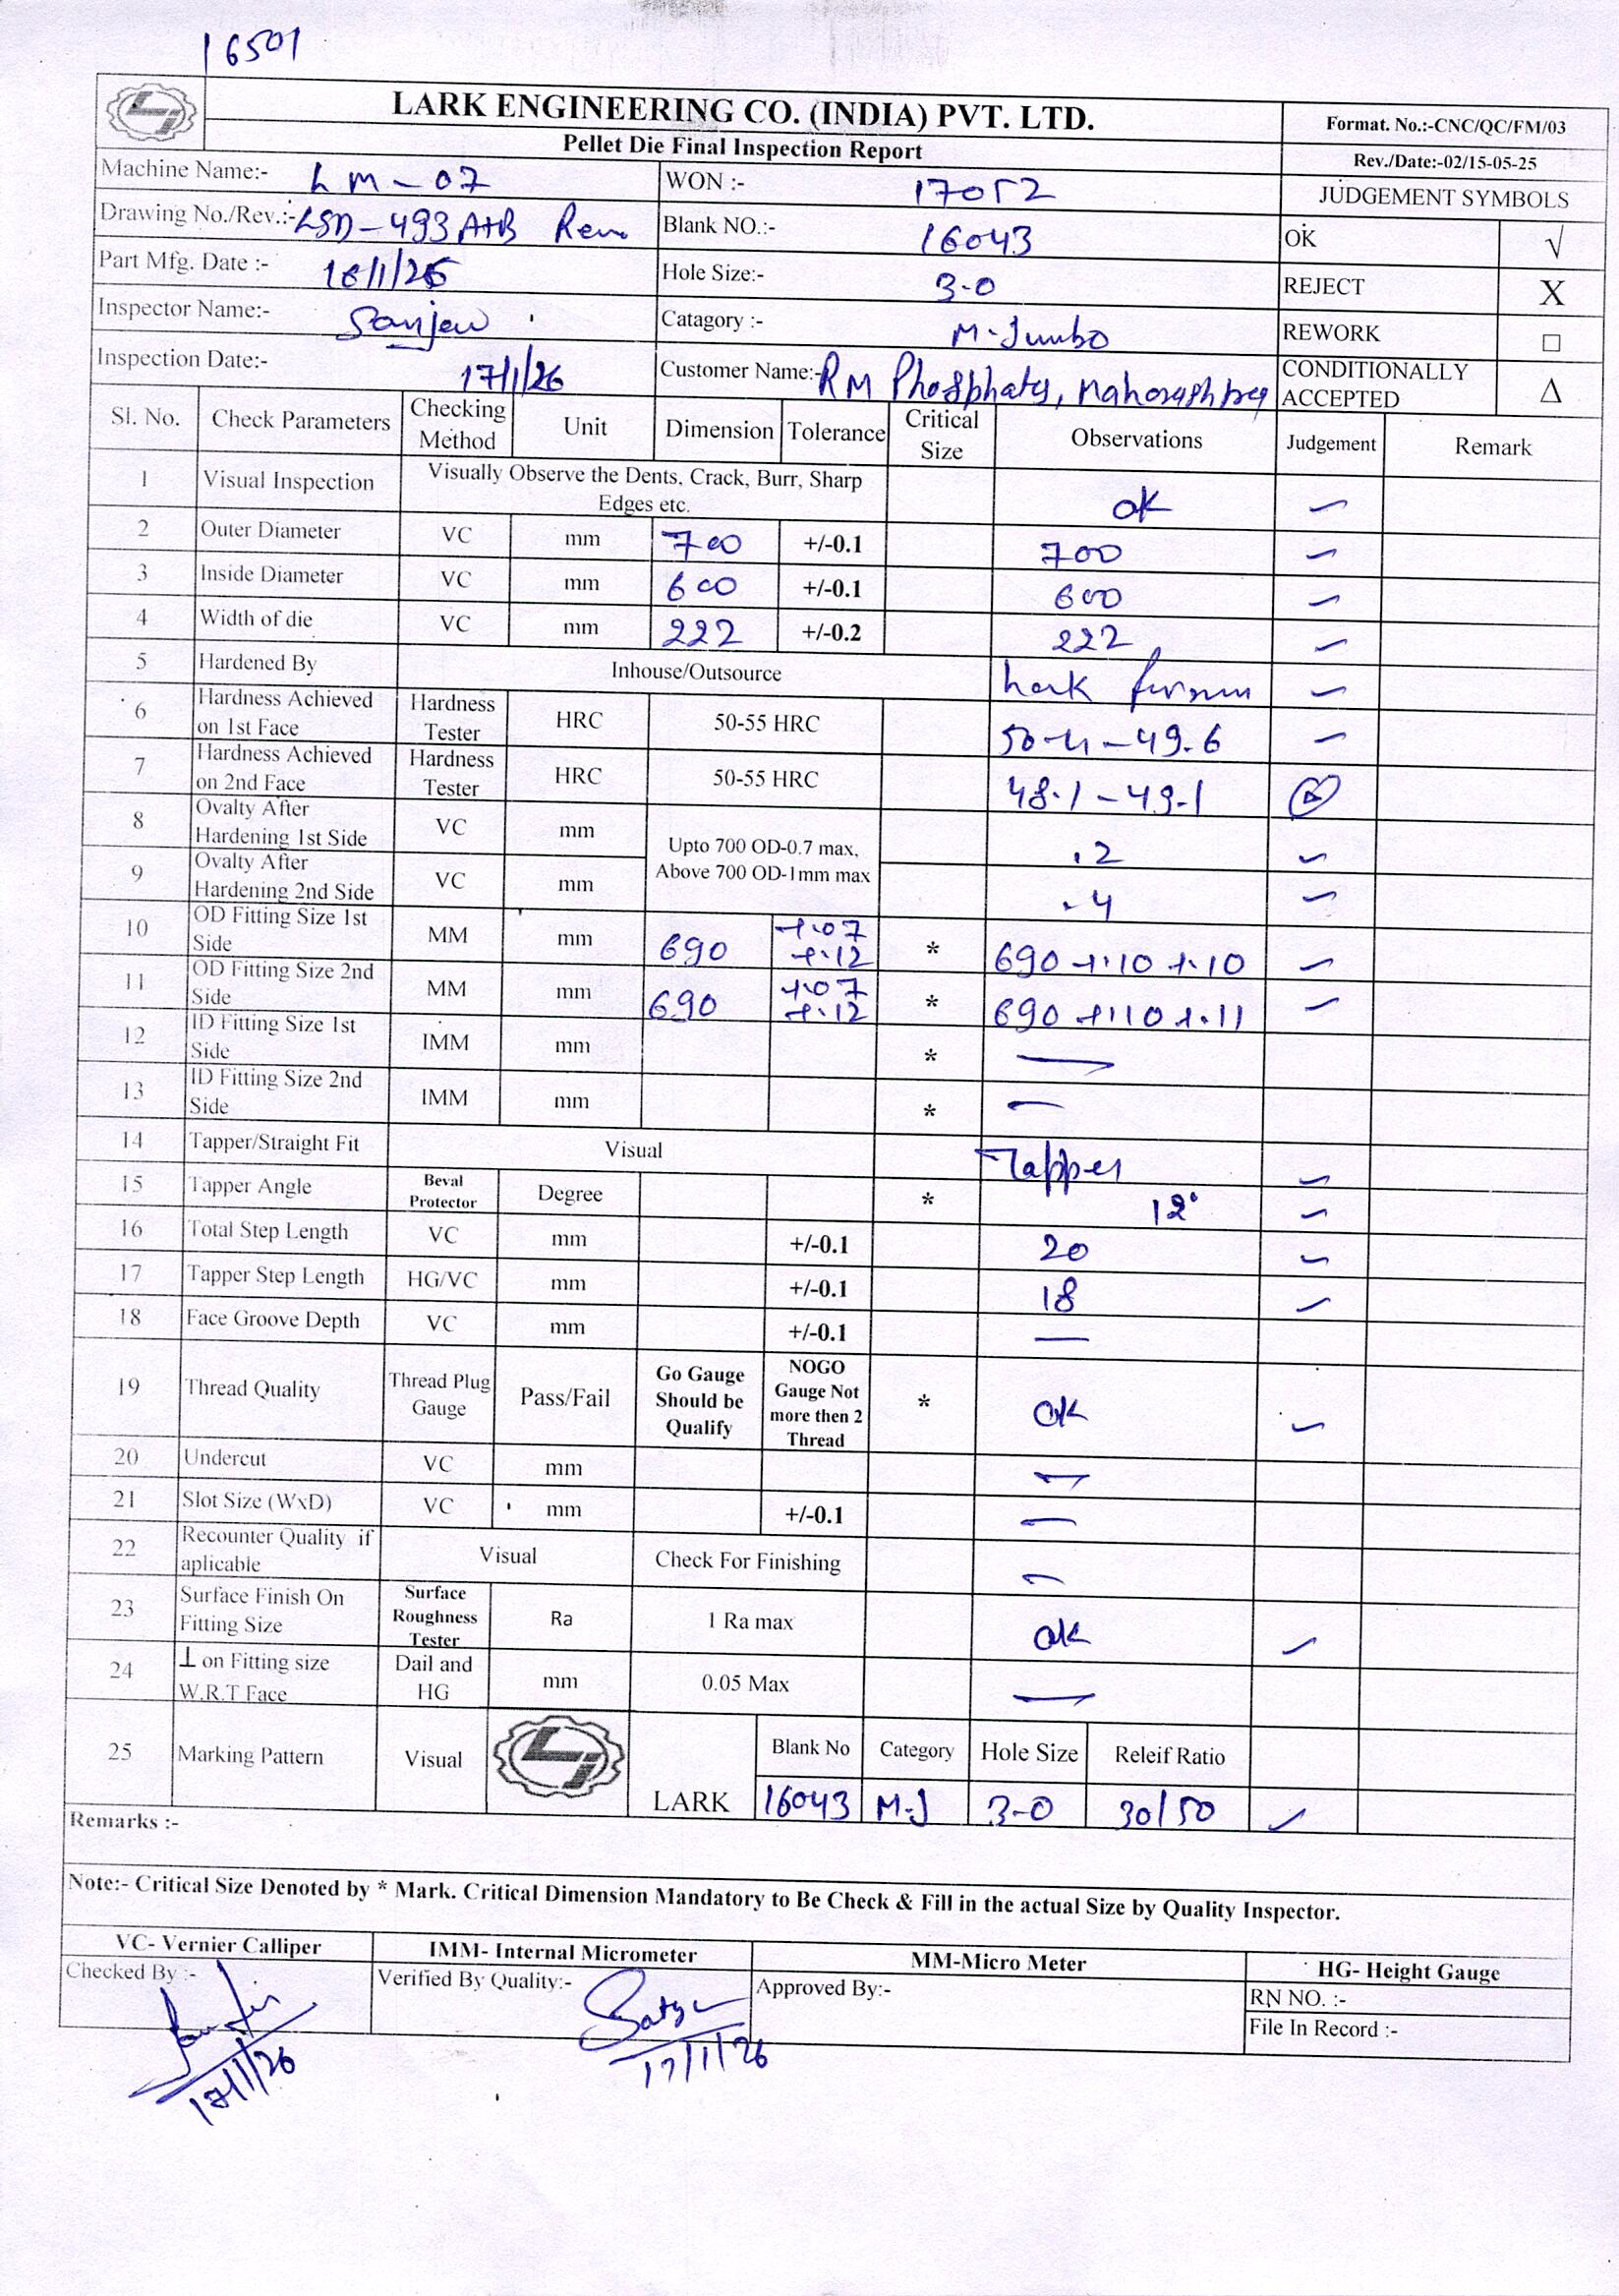 16501
LARK ENGINEERING CO. (INDIA) PVT. LTD.
Pellet Die Final Inspection Report
Format. No.:-CNC/QC/FM/03
Rev./Date:-02/15-05-25
Machine Name:- LM-07 WON :- 17052 JUDGEMENT SYMBOLS
Drawing No./Rev.:- LSD-493 A+B Blank NO.:- 16043 OK √
Part Mfg. Date :- 16/1/26 Hole Size:- 3.0 REJECT X
Inspector Name:- Sanjeev Catagory :- M-Jumbo REWORK □
Inspection Date:- 17/1/26 Customer Name:- RM Phosphates, CONDITIONALLY ACCEPTED Δ
Sl. No. Check Parameters Checking Method Unit Dimension Tolerance Critical Size Observations Judgement Remark
1 Visual Inspection Visually Observe the Dents, Crack, Burr, Sharp Edges etc. ok ✓
2 Outer Diameter VC mm 700 +/-0.1 700 ✓
3 Inside Diameter VC mm 600 +/-0.1 600 ✓
4 Width of die VC mm 222 +/-0.2 222 ✓
5 Hardened By Inhouse/Outsource ✓
6 Hardness Achieved on 1st Face Hardness Tester HRC 50-55 HRC 49.6 ✓
7 Hardness Achieved on 2nd Face Hardness Tester HRC 50-55 HRC 48.1-49.1 Δ
8 Ovalty After Hardening 1st Side VC mm Upto 700 OD-0.7 max, Above 700 OD-1mm max .2 ✓
9 Ovalty After Hardening 2nd Side VC mm .4 ✓
10 OD Fitting Size 1st Side MM mm 690 +.07 +.12 * 690 +.10 +.10 ✓
11 OD Fitting Size 2nd Side MM mm 690 +.07 +.12 * 690 +.10 +.11 ✓
12 ID Fitting Size 1st Side IMM mm * —
13 ID Fitting Size 2nd Side IMM mm * —
14 Tapper/Straight Fit Visual Tapper ✓
15 Tapper Angle Beval Protector Degree * 12° ✓
16 Total Step Length VC mm +/-0.1 20 ✓
17 Tapper Step Length HG/VC mm +/-0.1 18 ✓
18 Face Groove Depth VC mm +/-0.1 —
19 Thread Quality Thread Plug Gauge Pass/Fail Go Gauge Should be Qualify NOGO Gauge Not more then 2 Thread * ok ✓
20 Undercut VC mm —
21 Slot Size (WxD) VC mm +/-0.1 —
22 Recounter Quality if aplicable Visual Check For Finishing —
23 Surface Finish On Fitting Size Surface Roughness Tester Ra 1 Ra max ok ✓
24 ⊥ on Fitting size W.R.T Face Dail and HG mm 0.05 Max —
25 Marking Pattern Visual LARK Blank No Category Hole Size Releif Ratio
16043 M-J 3-0 30/50 ✓
Remarks :-
Note:- Critical Size Denoted by * Mark. Critical Dimension Mandatory to Be Check & Fill in the actual Size by Quality Inspector.
VC- Vernier Calliper IMM- Internal Micrometer MM-Micro Meter HG- Height Gauge
Checked By :- Verified By Quality:- Approved By:- RN NO. :-
File In Record :-
17/1/26 17/1/26